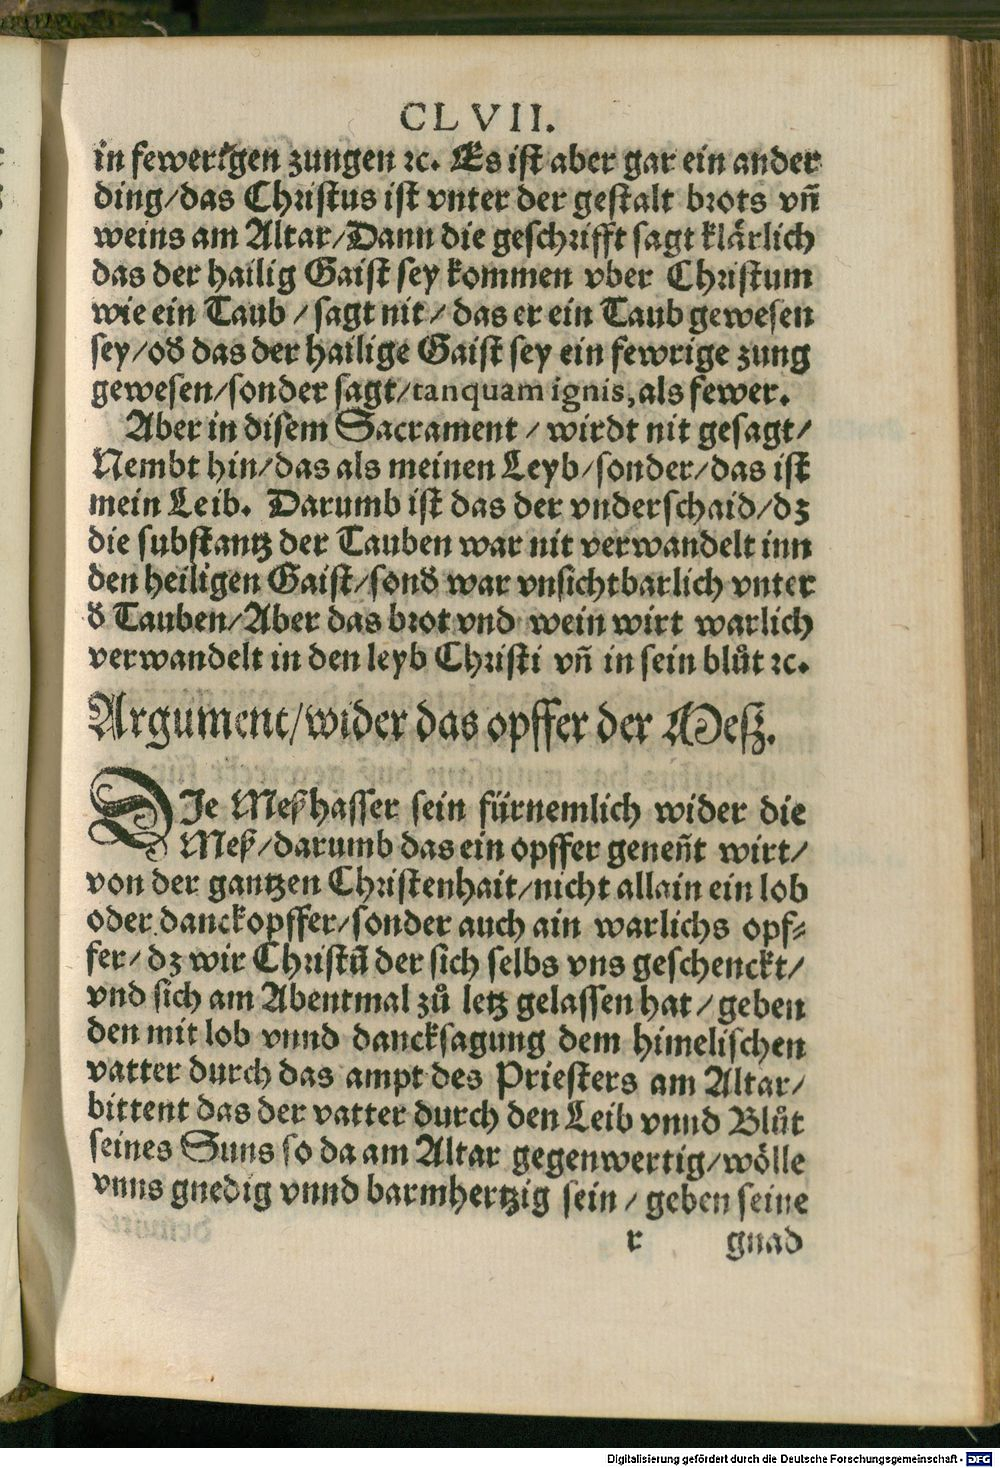 CLVII.
in fewerigen zungen ꝛc. Es ist aber gar ein ander
ding/das Christus ist vnter der gestalt brots vn̄
weins am Altar/Dann die geschrifft sagt klärlich
das der hailig Gaist sey kommen vber Christum
wie ein Taub / sagt nit / das er ein Taub gewesen
sey/od̕ das der hailige Gaist sey ein fewrige zung
gewesen/sonder sagt/tanquam ignis, als fewer.
Aber in disem Sacrament / wirdt nit gesagt/
Nembt hin/das als meinen Leyb/sonder/das ist
mein Leib. Darumb ist das der vnderschaid/dz
die substantz der Tauben war nit verwandelt inn
den heiligen Gaist/sond̕ war vnsichtbarlich vnter
d̕ Tauben/Aber das brot vnd wein wirt warlich
verwandelt in den leyb Christi vn̄ in sein blůt ꝛc.
Argument/wider das opffer der Meß.
DIe Meßhasser sein fürnemlich wider die
Meß/darumb das ein opffer genen̄t wirt/
von der gantzen Christenhait/nicht allain ein lob
oder danckopffer/sonder auch ain warlichs opf-
fer/ dz wir Christū der sich selbs vns geschenckt/
vnd sich am Abentmal zů letz gelassen hat / geben
den mit lob vnnd dancksagung dem himelischen
vatter durch das ampt des Priesters am Altar/
bittent das der vatter durch den Leib vnnd Blůt
seines Suns so da am Altar gegenwertig/wölle
vnns gnedig vnnd barmhertzig sein / geben seine
r gnad
Digitalisierung gefördert durch die Deutsche Forschungsgemeinschaft - DFG